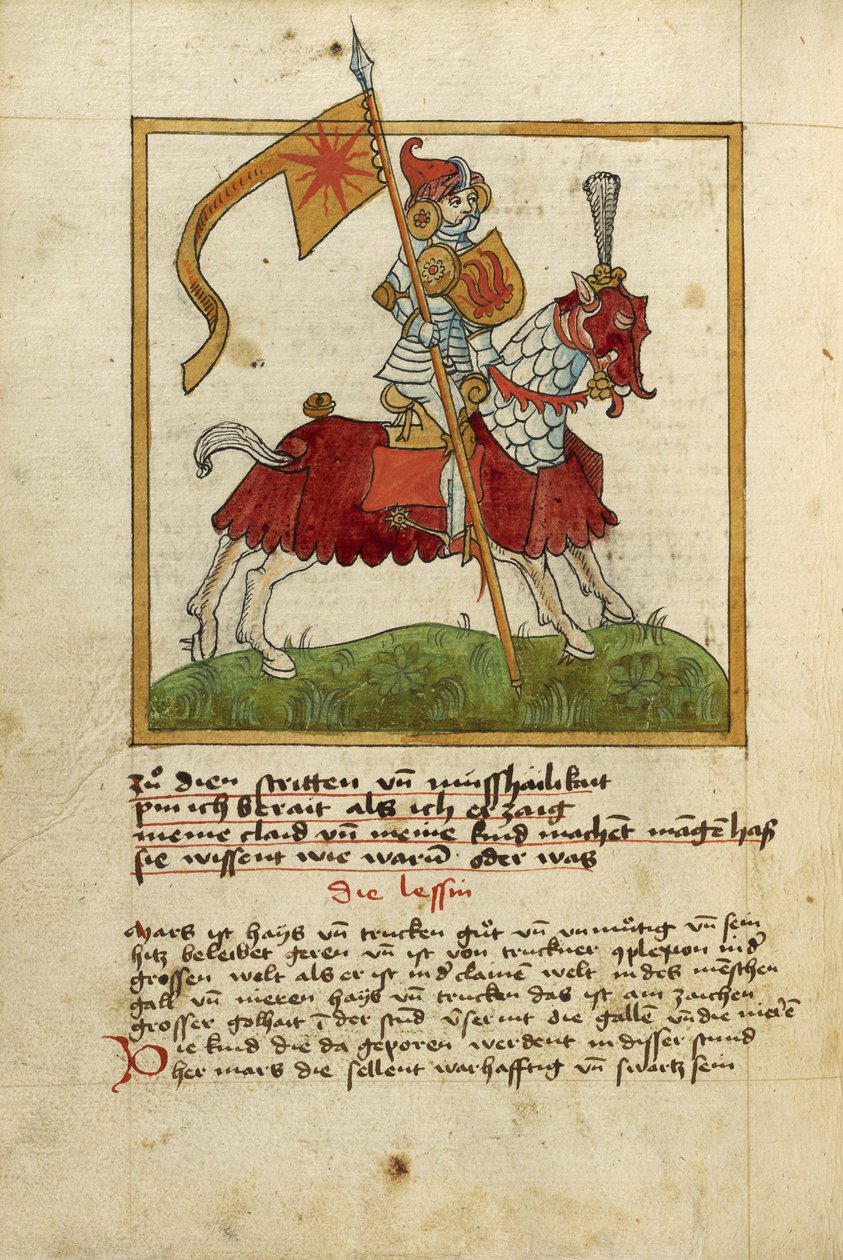 zuͦ dien stritten vn̄ missháilikait
pin ich berait als ich erzaig
meine claid vn̄ meine kind machēt māgē haß
sie wissent wie warū oder was
die lessin
Mars ist hays vn̄ trucken guͦt vn̄ vnmuͦtig vn̄ sein
hitz beleibet geren vn̄ ist von truckner ꝯplexion in dʼ
grossen welt als er ist in dʼ clainē welt in des mēschen
gall vn̄ nieren hays vn̄ trucken das ist am zaichen
grosser die gallē vn̄ die nierē
Die kind die da geporen werdent in disser stund
her mars die sellent warhafftig vn̄ swartz sein